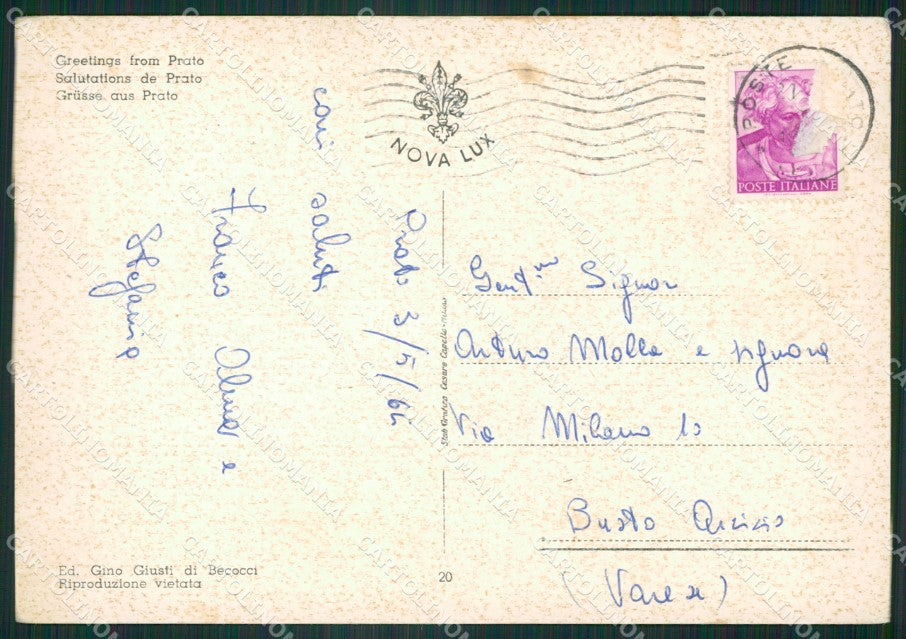 Greetings from Prato
Salutations de Prato
Grüsse aus Prato
NOVA LUX
POSTE
POSTE ITALIANE
Prato 3/5/64
cari saluti
Franco Alma e
Stefania
Gent.mo Signor
Arturo Molla e signora
Via Milano 10
Busto Arsizio
(Varese)
Stab. Grafico Cesare Capello - Milano
Ed. Gino Giusti di Becocci
Riproduzione vietata
20
CARTOLINOMANIA